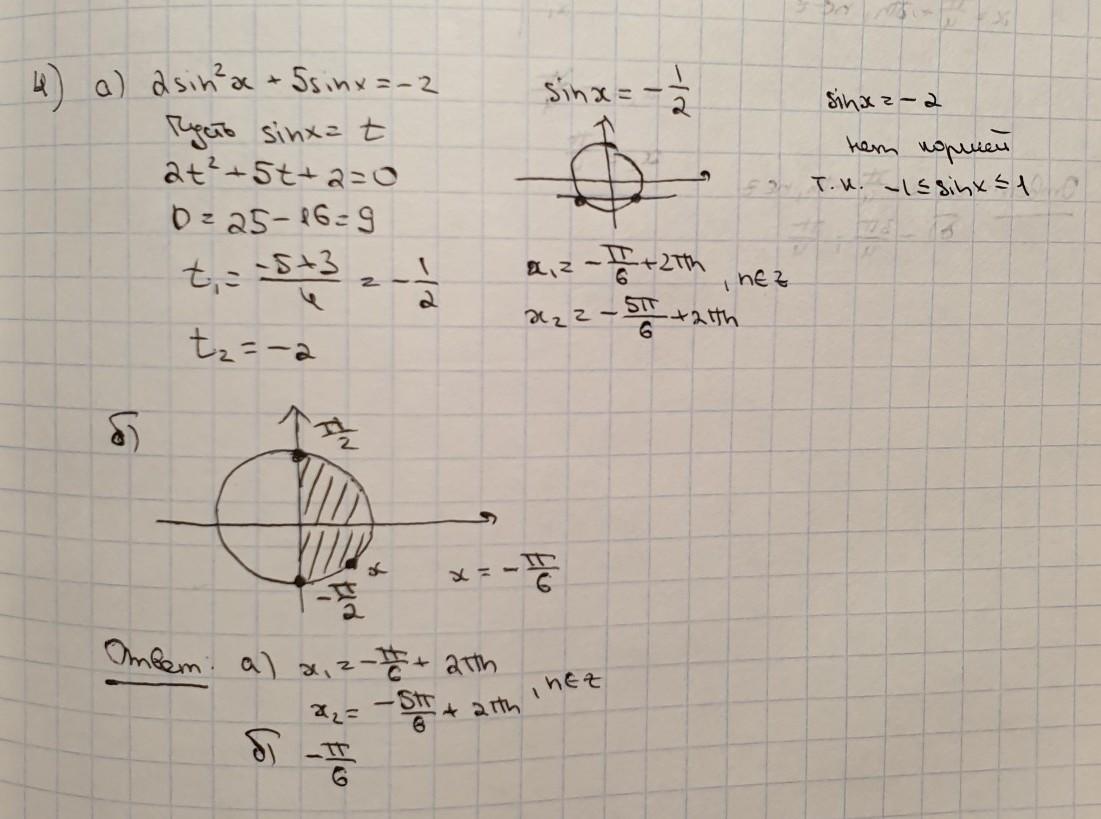 4) а) 2sin²x + 5sinx = -2
Пусть sinx = t
2t² + 5t + 2 = 0
D = 25 - 16 = 9
t₁ = (-5+3)/4 = -1/2
t₂ = -2
sinx = -1/2
x₁ = -π/6 + 2πn
x₂ = -5π/6 + 2πn , n∈z
sinx = -2
нет корней
т.к. -1 ≤ sinx ≤ 1
б)
π/2
x
-π/2
x = -π/6
Ответ: а) x₁ = -π/6 + 2πn
x₂ = -5π/6 + 2πn , n∈z
б) -π/6